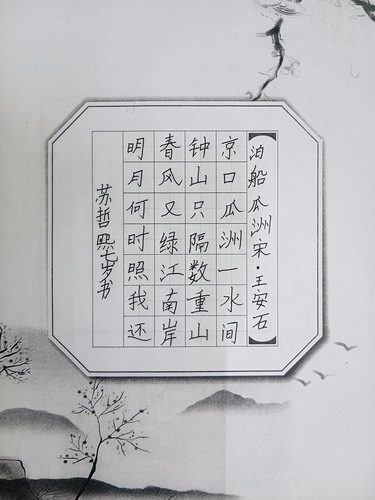 泊船瓜洲 宋·王安石
京口瓜洲一水间
钟山只隔数重山
春风又绿江南岸
明月何时照我还
苏哲熙七岁书